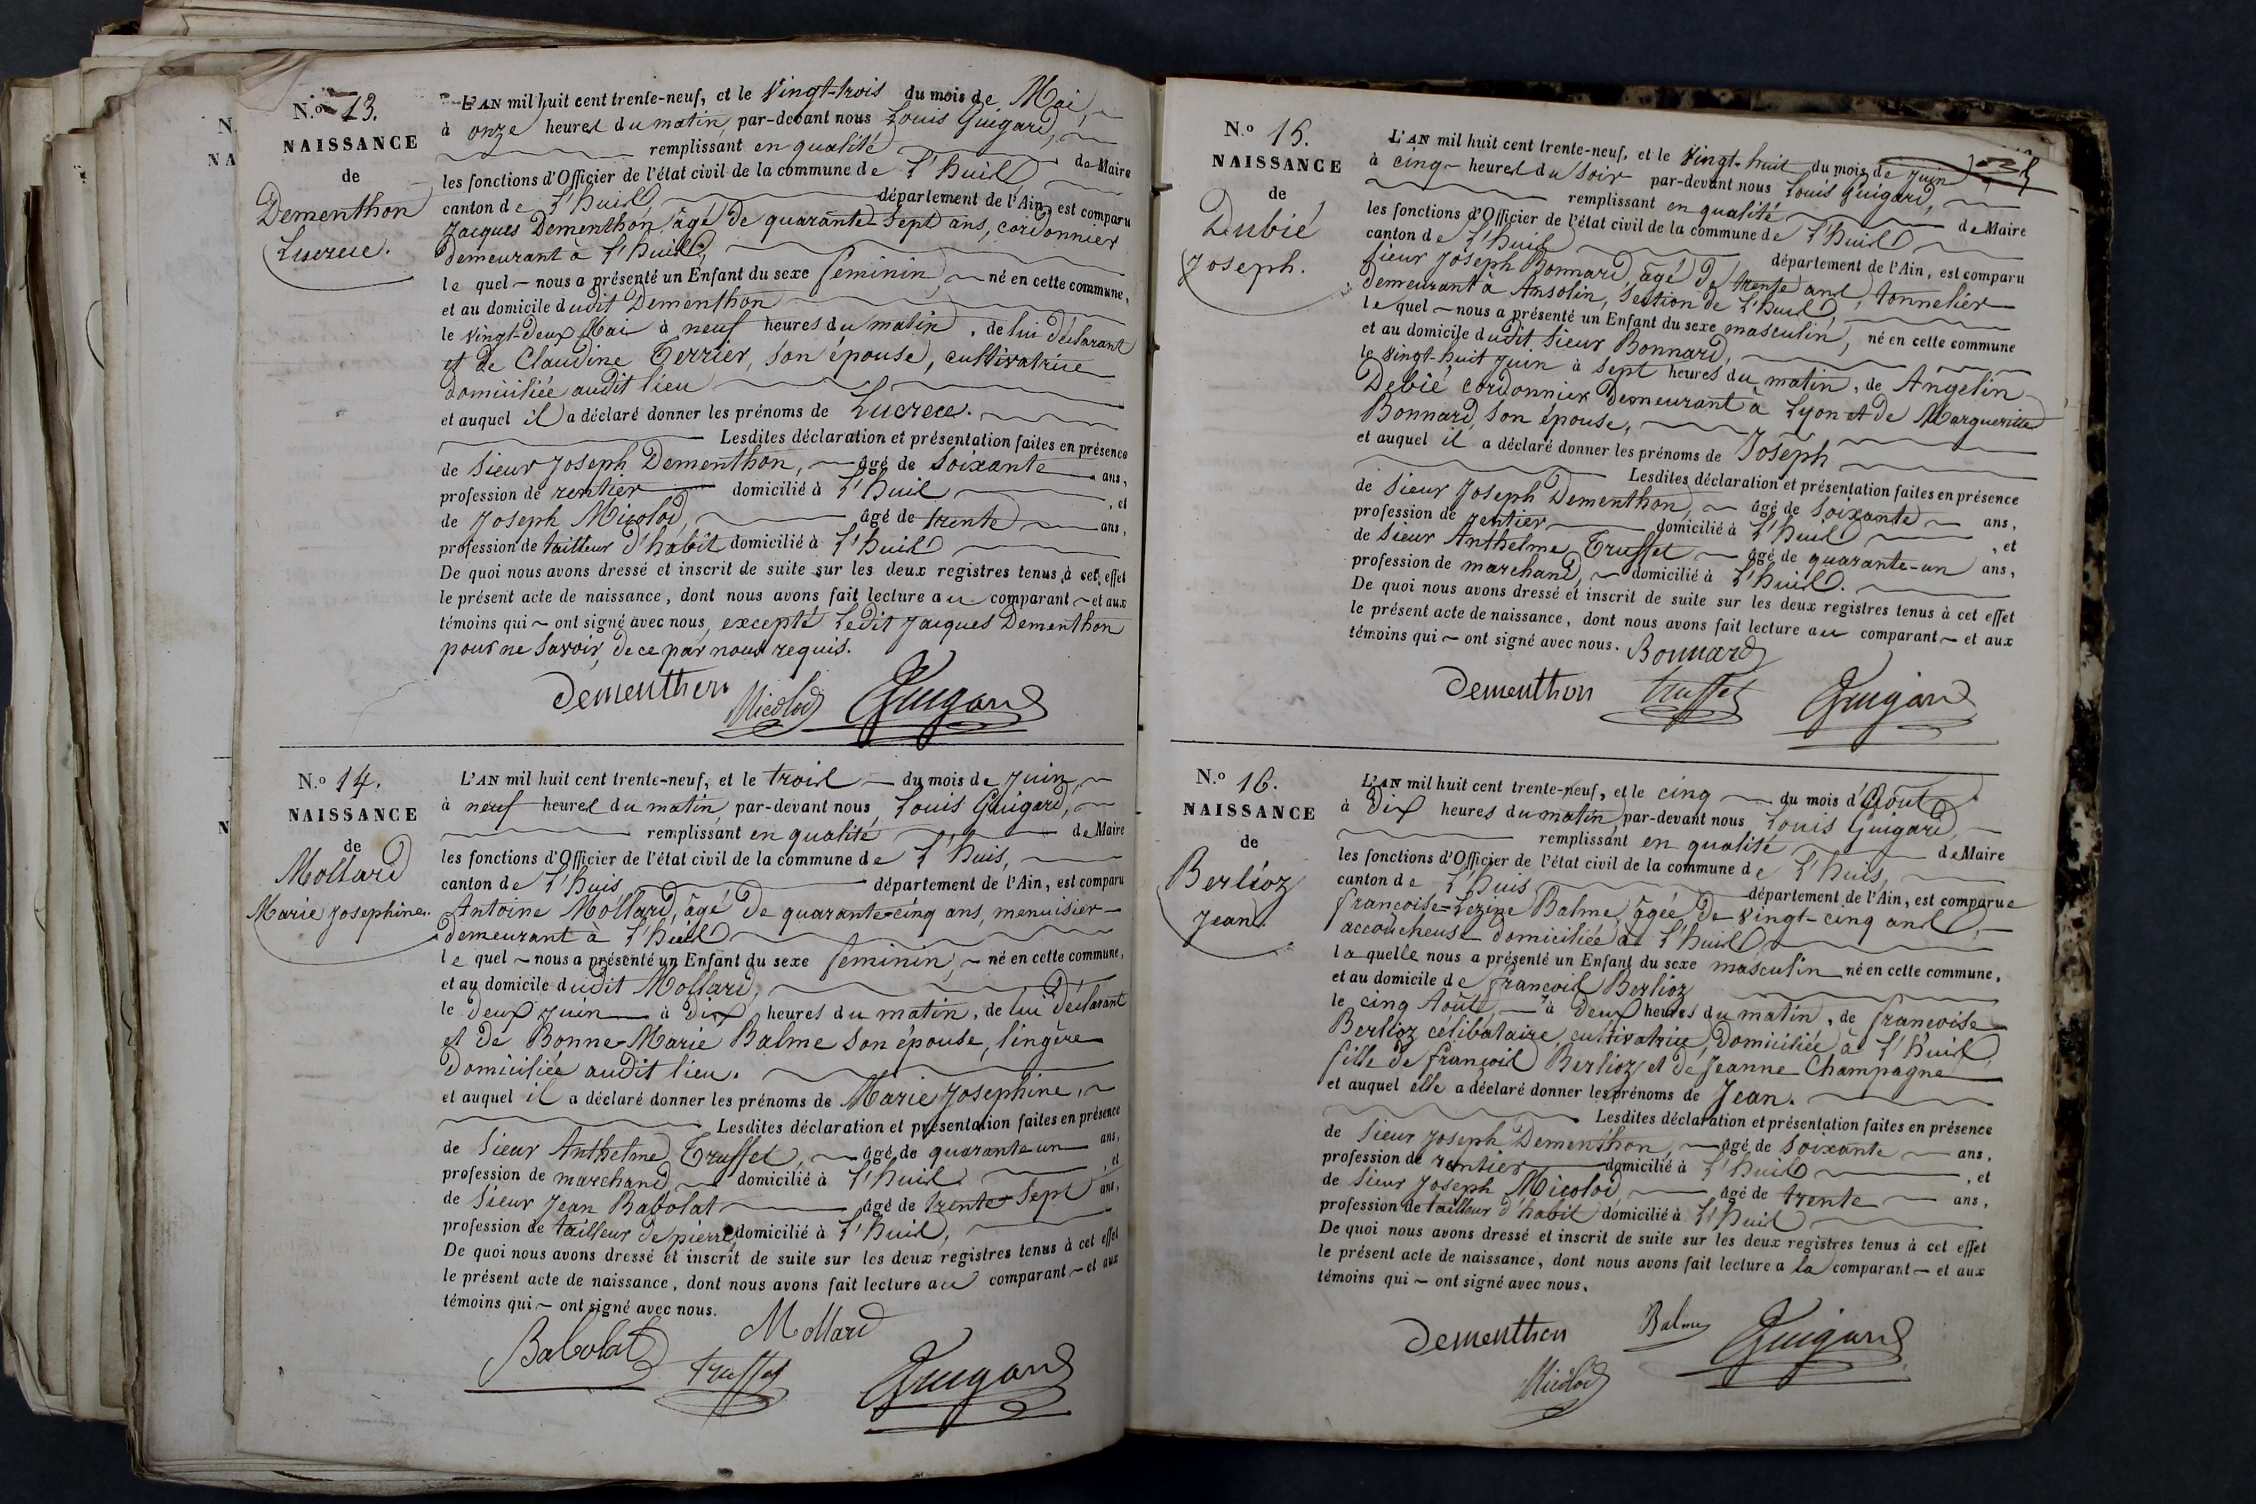 N.o 13.
NAISSANCE
de
Dementhon
Lucrece.
L'AN mil huit cent trente-neuf, et le Vingt-trois du mois de Mai,
à onze heures du matin, par-devant nous Louis Guigard,
remplissant en qualité de Maire
les fonctions d'Officier de l'état civil de la commune de L'huis
canton de L'huis, département de l'Ain, est comparu
Jacques Dementhon, âgé de quarante-sept ans, cordonnier
demeurant à L'huis,
le quel nous a présenté un Enfant du sexe feminin, né en cette commune,
et au domicile dudit Dementhon
le vingt-deux Mai à neuf heures du matin, de lui déclarant
et de Claudine Terrier, son épouse, cultivatrice
domiciliée audit lieu
et auquel il a déclaré donner les prénoms de Lucrece.
Lesdites déclaration et présentation faites en présence
de Sieur Joseph Dementhon, âgé de soixante ans,
profession de rentier domicilié à L'huis, et
de Joseph Micolod, âgé de trente ans,
profession de tailleur d'habit domicilié à L'huis
De quoi nous avons dressé et inscrit de suite sur les deux registres tenus à cet effet
le présent acte de naissance, dont nous avons fait lecture au comparant et aux
témoins qui ont signé avec nous, excepté Ledit Jacques Dementhon
pour ne savoir, de ce par nous requis.
Dementhon Micolod Guigard
N.o 14.
NAISSANCE
de
Mollard
Marie Josephine.
L'AN mil huit cent trente-neuf, et le trois du mois de Juin,
à neuf heures du matin, par-devant nous, Louis Guigard,
remplissant en qualité de Maire
les fonctions d'Officier de l'état civil de la commune de L'huis,
canton de L'huis département de l'Ain, est comparu
Antoine Mollard, âgé de quarante-cinq ans, menuisier
demeurant à L'huis
le quel nous a présenté un Enfant du sexe feminin, né en cette commune,
et au domicile dudit Mollard,
le deux Juin à dix heures du matin, de lui déclarant
et de Bonne-Marie Balme son épouse, lingère
domiciliée audit lieu.
et auquel il a déclaré donner les prénoms de Marie Josephine,
Lesdites déclaration et présentation faites en présence
de Sieur Anthelme Truffet, âgé de quarante un ans,
profession de marchand, domicilié à L'huis, et
de Sieur Jean Babolat âgé de trente-sept ans,
profession de tailleur de pierre, domicilié à L'huis,
De quoi nous avons dressé et inscrit de suite sur les deux registres tenus à cet effet
le présent acte de naissance, dont nous avons fait lecture au comparant et aux
témoins qui ont signé avec nous.
Babolat Mollard
Truffet Guigard
N.o 15.
NAISSANCE
de
Dubié
Joseph.
L'AN mil huit cent trente-neuf, et le Vingt-huit du mois de Juin,
à cinq heures du Soir par-devant nous Louis Guigard,
remplissant en qualité de Maire
les fonctions d'Officier de l'état civil de la commune de L'huis
canton de L'huis département de l'Ain, est comparu
Sieur Joseph Bonnard, âgé de trente ans, tonnelier
demeurant à Ansolin, Section de L'huis,
le quel nous a présenté un Enfant du sexe masculin, né en cette commune
et au domicile dudit Sieur Bonnard,
le vingt-huit Juin à sept heures du matin, de Angelin
Debié cordonnier demeurant à Lyon et de Marguerite
Bonnard, son épouse,
et auquel il a déclaré donner les prénoms de Joseph
Lesdites déclaration et présentation faites en présence
de Sieur Joseph Dementhon, âgé de soixante ans,
profession de rentier domicilié à L'huis, et
de Sieur Anthelme Truffet âgé de quarante-un ans,
profession de marchand, domicilié à L'huis.
De quoi nous avons dressé et inscrit de suite sur les deux registres tenus à cet effet
le présent acte de naissance, dont nous avons fait lecture au comparant et aux
témoins qui ont signé avec nous. Bonnard
Dementhon Truffet Guigard
N.o 16.
NAISSANCE
de
Berlioz
Jean.
L'AN mil huit cent trente-neuf, et le cinq du mois d'Août
à Dix heures du matin, par-devant nous Louis Guigard,
remplissant en qualité de Maire
les fonctions d'Officier de l'état civil de la commune de L'huis,
canton de L'huis département de l'Ain, est comparue
françoise-Lezine Balme, âgée de vingt-cinq ans,
accoucheuse domiciliée à L'huis,
la quelle nous a présenté un Enfant du sexe masculin né en cette commune,
et au domicile de françois Berlioz
le cinq Août, à deux heures du matin, de françoise
Berlioz célibataire, cultivatrice, domiciliée à L'huis,
fille de françois Berlioz et de Jeanne Champagne
et auquel elle a déclaré donner les prénoms de Jean.
Lesdites déclaration et présentation faites en présence
de Sieur Joseph Dementhon, âgé de soixante ans,
profession de rentier domicilié à L'huis, et
de Sieur Joseph Micolod âgé de trente ans,
profession de tailleur d'habit domicilié à L'huis
De quoi nous avons dressé et inscrit de suite sur les deux registres tenus à cet effet
le présent acte de naissance, dont nous avons fait lecture a la comparant et aux
témoins qui ont signé avec nous.
Dementhon Balme Guigard
Micolod